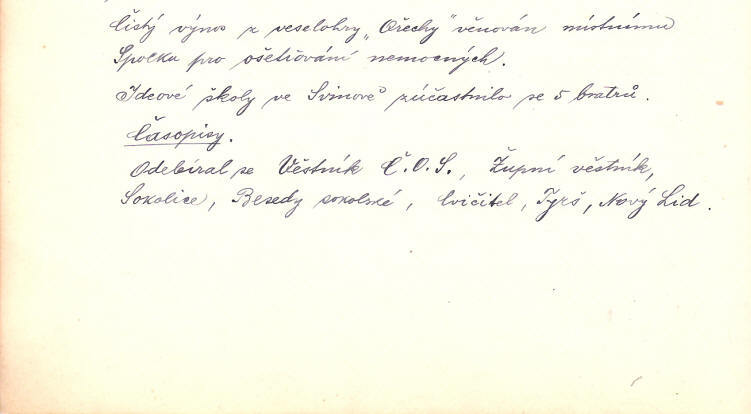 Čistý výnos z veselohry „Ořechy" věnován místnímu
Spolku pro ošetřování nemocných.
Ideové školy ve Svinově zúčastnilo se 5 bratrů.
Časopisy.
Odebíral se Věstník Č.O.S., Župní věstník,
Sokolice, Besedy sokolské, Cvičitel, Tyrš, Nový Lid.